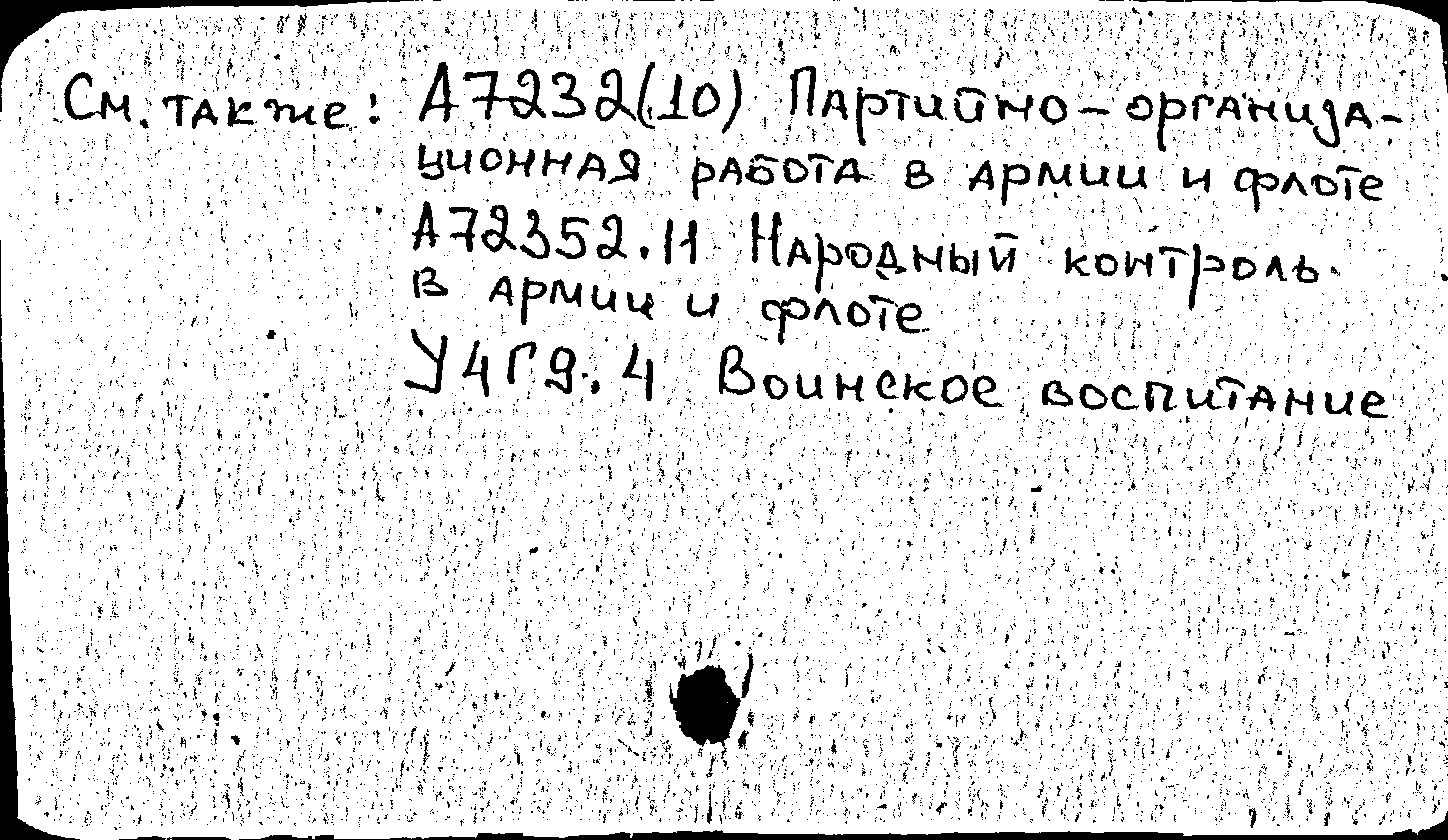 См. также: А7232(10) Партийно-организа-
ционная работа в армии и флоте
А72352.11 Народный контроль
в армии и флоте
У4Г9.4 Воинское воспитание